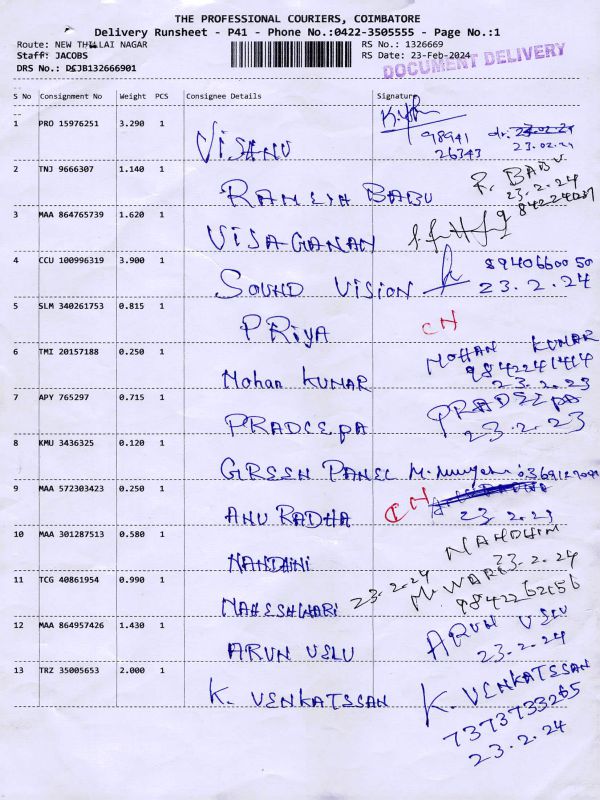 THE PROFESSIONAL COURIERS, COIMBATORE
Delivery Runsheet - P41 - Phone No.:0422-3505555 - Page No.:1
Route: NEW THILLAI NAGAR RS No.: 1326669
Staff: JACOBS RS Date: 23-Feb-2024
DRS No.: DSJB132666901 DOCUMENT DELIVERY
S No Consignment No Weight PCS Consignee Details Signature
1 PRO 15976251 3.290 1 VISANU 98941
26343 23.02.24
2 TNJ 9666307 1.140 1 BABU R. BABU
23.2.24
3 MAA 864765739 1.620 1 VISAGANAN
4 CCU 100996319 3.900 1 SOUND VISION 8940660050
23.2.24
5 SLM 340261753 0.815 1 PRIYA CN
6 TMI 20157188 0.250 1 Mohan KUMAR MOHAN KUMAR
9842241414
23.2.23
7 APY 765297 0.715 1 PRADEEPA PRADEEPA
23.2.23
8 KMU 3436325 0.120 1 GREEN PANEL
9 MAA 572303423 0.250 1 ANU RADHA CN
23.2.23
10 MAA 301287513 0.580 1 NANDHINI NANDHINI
23.2.24
11 TCG 40861954 0.990 1 MAHESHWARI 23.2.24
12 MAA 864957426 1.430 1 ARUN VELU ARUN VELU
23.2.24
13 TRZ 35005653 2.000 1 K. VENKATESAN K. VENKATESAN
7373733265
23.2.24